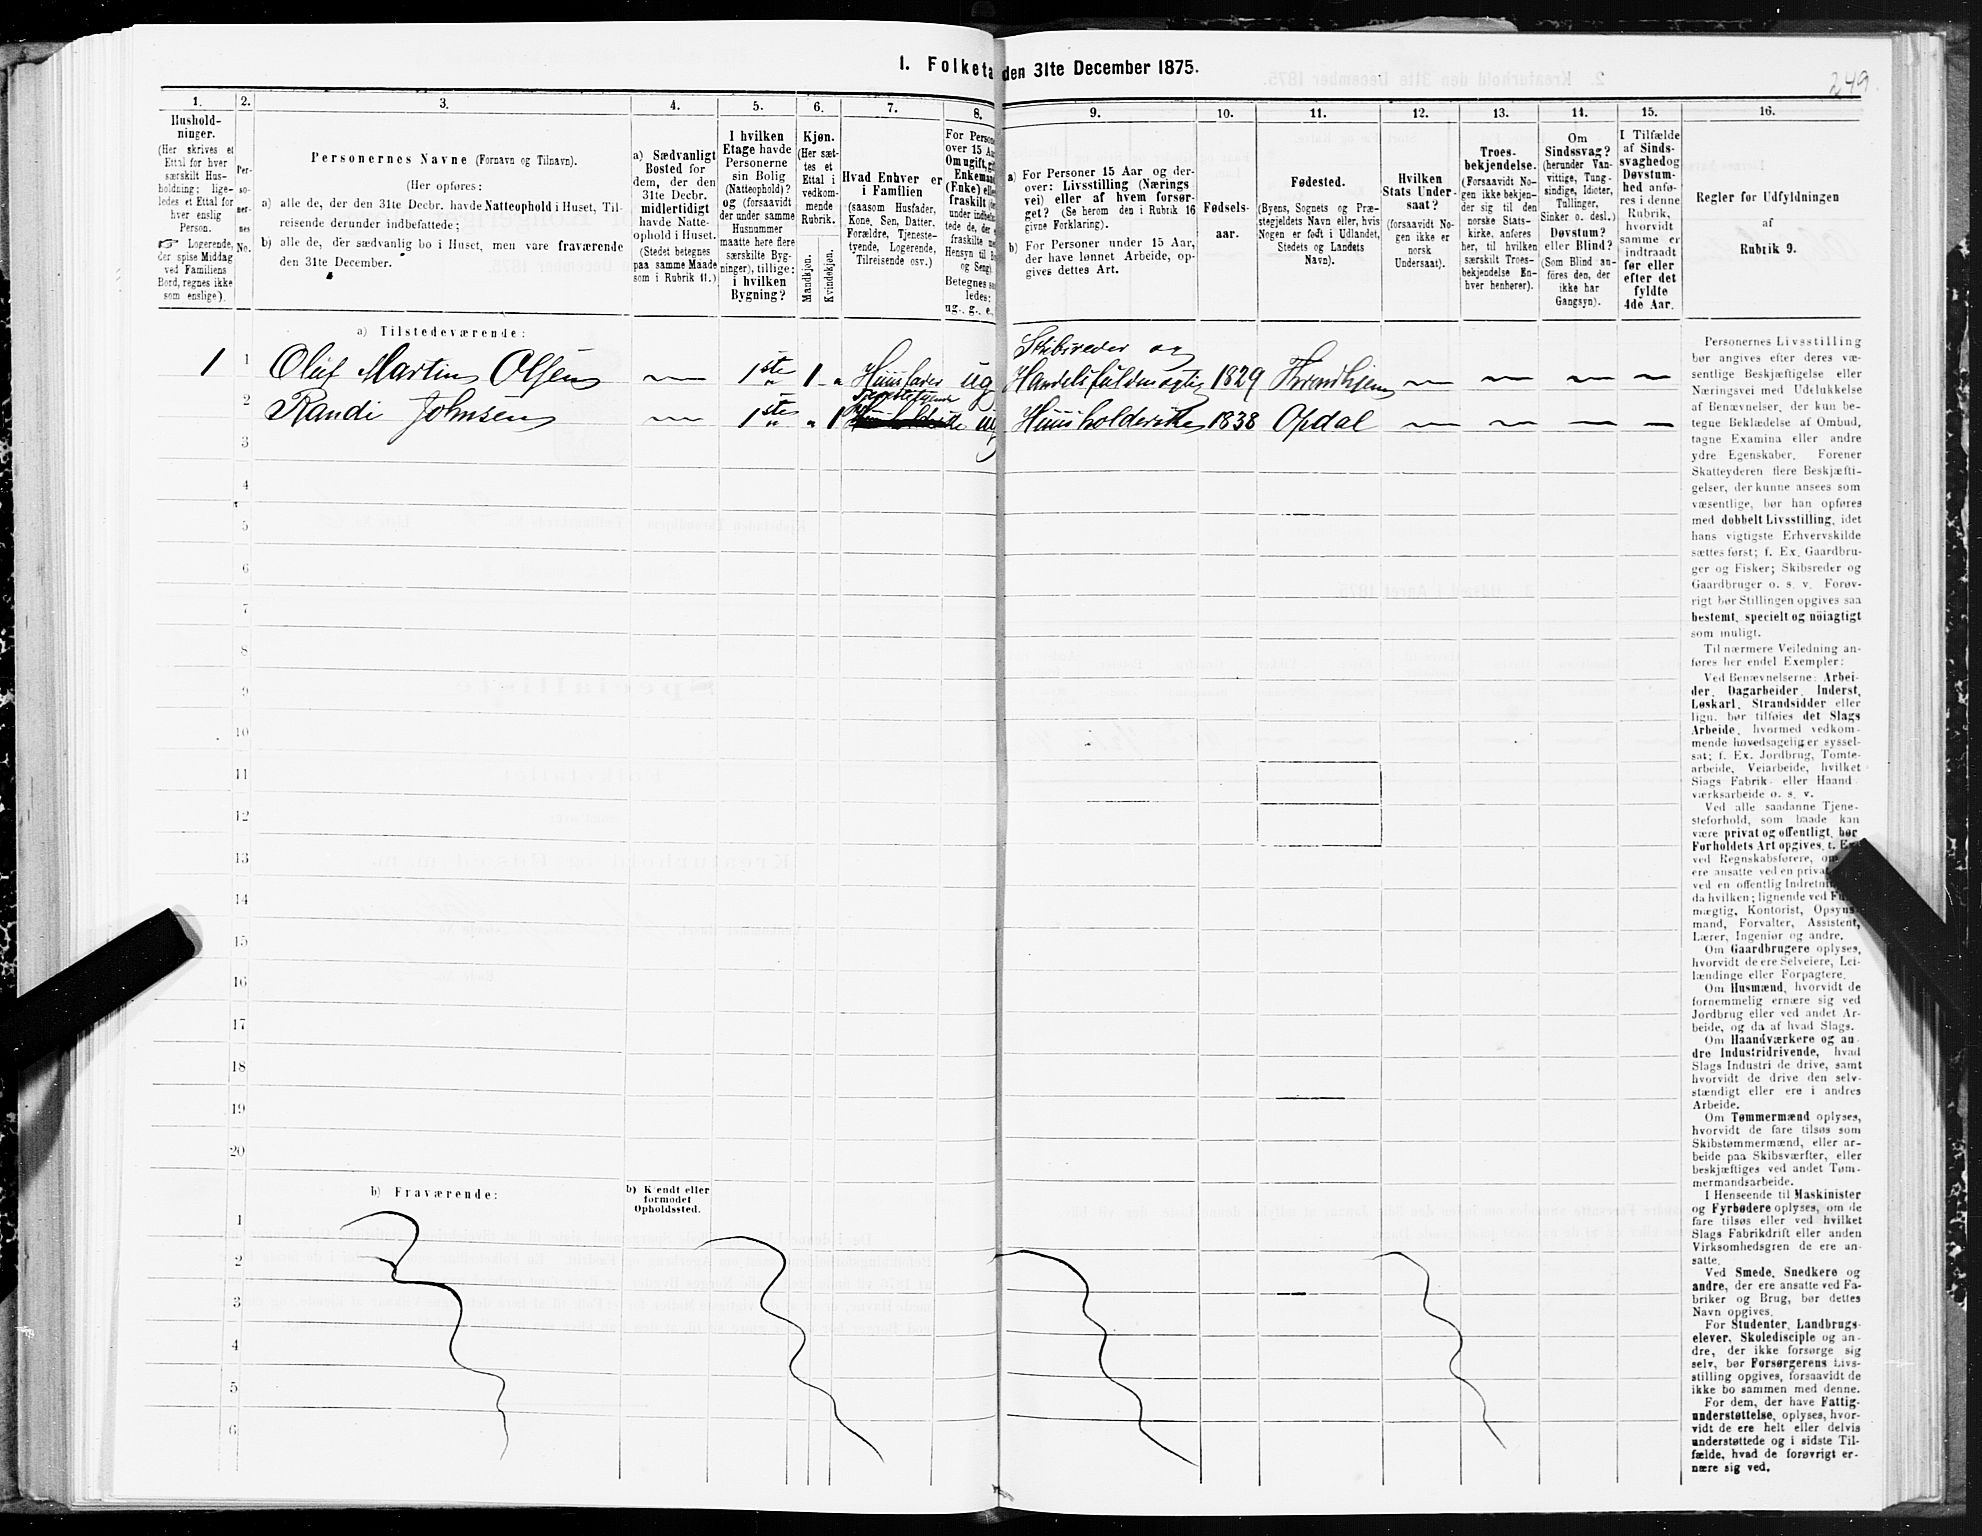 1. Folketa den 31te December 1875.
249.
1.
Hushold-
ninger.
(Her skrives et
Ettal for hver
særskilt Hus-
holdning; lige-
ledes et Ettal for
hver enslig
Person.
☞ Logerende,
der spise Middag
ved Familiens
Bord, regnes ikke
som enslige).
2.
Per-
so-
ner-
nes
No.
3.
Personernes Navne (Fornavn og Tilnavn).
(Her opføres:
a) alle de, der den 31te Decbr. havde Natteophold i Huset, Til-
reisende derunder indbefattede;
b) alle de, der sædvanlig bo i Huset, men vare fraværende
den 31te December.
4.
a) Sædvanligt
Bosted for
dem, der den
31te Decbr.
midlertidigt
havde Natte-
ophold i Huset.
(Stedet betegnes
paa samme Maade
som i Rubrik 11.)
5.
I hvilken
Etage havde
Personerne
sin Bolig
(Natteophold)?
og (forsaavidt
der under samme
Husnummer
maatte høre flere
særskilte Byg-
ninger), tillige:
i hvilken
Bygning?
6.
Kjøn.
(Her sæt-
tes et
Ettal i
vedkom-
mende
Rubrik.
Mandkjøn.
Kvindekjøn.
7.
Hvad Enhver er
i Familien
(saasom Husfader,
Kone, Søn, Datter,
Forældre, Tjeneste-
tyende, Logerende,
Tilreisende osv.)
8.
For Perso
over 15 Aa
Om ugift, gi
Enkemand
(Enke) elle
fraskilt (de
under indbe
tede de, der
fraskilte me
Hensyn til B
og Seng).
Betegnes saa
ledes:
ug., g., e.,
9.
a) For Personer 15 Aar og der-
over: Livsstilling (Nærings
vei) eller af hvem forsør-
get? (Se herom den i Rubrik 16
givne Forklaring).
b) For Personer under 15 Aar,
der have lønnet Arbeide, op-
gives dettes Art.
10.
Fødsels-
aar.
11.
Fødested.
(Byens, Sognets og Præ-
stegjeldets Navn eller, hvis
Nogen er født i Udlandet,
Stedets og Landets
Navn).
12.
Hvilken
Stats Under-
saat?
(forsaavidt No-
gen ikke er
norsk
Undersaat).
13.
Troes-
bekjendelse.
(Forsaavidt No-
gen ikke bekjen-
der sig til den
norske Stats-
kirke, anføres
her, til hvilken
særskilt Troes-
bekjendelse En-
hver henhører).
14.
Om
Sindssvag?
(herunder Van-
vittige, Tung-
sindige, Idioter,
Tullinger,
Sinker o. desl.)
Døvstum?
eller Blind?
(Som Blind an-
føres den, der
ikke har
Gangsyn).
15.
I Tilfælde
af Sinds-
svaghed og
Døvstum-
hed anfø-
res i denne
Rubrik,
hvorvidt
samme er
indtraadt
før eller
efter det
fyldte
4de Aar.
16.
Regler for Udfyldningen
af
Rubrik 9.
a) Tilstedeværende:
1 1 Oluf Martin Olsen — 1ste " 1 - " Huusfader ug Skibsreder og
Handelsfuldmægtig 1829 Throndhjem — — — —
2 Randi Johnsen — 1ste " " 1 Tjenestetyende ug Huusholderske 1838 Opdal — — — —
3
4
5
6
7
8
9
10
11
12
13
14
15
16
17
18
19
20
b) Fraværende:
b) Kjendt eller
formodet
Opholdssted.
1
2
3
4
5
6
Personernes Livsstilling
bør angives efter deres væ-
sentlige Beskjæftigelse eller
Næringsvei med Udelukkelse
af Benævnelser, der kun be-
tegne Beklædelse af Ombud,
tagne Examina eller andre
ydre Egenskaber. Forener
Skatteyderen flere Beskjæfti-
gelser, der kunne ansees som
væsentlige, bør han opføres
med dobbelt Livsstilling, idet
hans vigtigste Erhvervskilde
sættes først; f. Ex. Gaardbru-
ger og Fisker; Skibsreder og
Gaardbruger o. s. v. Forøv-
rigt bør Stillingen opgives saa
bestemt, specielt og nöiagtigt
som muligt.
Til nærmere Veiledning an-
føres her endel Exempler:
Ved Benævnelserne: Arbei-
der, Dagarbeider, Inderst,
Løskarl, Strandsidder eller
lign. bør tilføies det Slags
Arbeide, hvormed vedkom-
mende hovedsagelig er syssel-
sat; f. Ex. Jordbrug, Tomte-
arbeide, Veiarbeide, hvilket
Slags Fabrik- eller Haand-
værksarbeide o. s. v.
Ved alle saadanne Tjene-
steforhold, som baade kan
være privat og offentligt, bør
Forholdets Art opgives, f. Ex.
ved Regnskabsførere, om
ere ansatte ved en privat
ved en offentlig Indretn
da hvilken; lignende ved Fu
mægtig, Kontorist, Opsyns-
mand, Forvalter, Assistent,
Lærer, Ingeniør og andre.
Om Gaardbrugere oplyses,
hvorvidt de ere Selveiere, Lei-
lændinge eller Forpagtere.
Om Husmænd, hvorvidt de
fornemmelig ernære sig ved
Jordbrug eller ved andet Ar-
beide, og da af hvad Slags.
Om Haandværkere og an-
dre Industridrivende, hvad
Slags Industri de drive, samt
hvorvidt de drive den selv-
stændigt eller ere i andres
Arbeide.
Om Tømmermænd oplyses,
hvorvidt de fare tilsøs som
Skibstømmermænd, eller ar-
beide paa Skibsværfter, eller
beskjæftiges ved andet Tøm-
mermandsarbeide.
I Henseende til Maskinister
og Fyrbødere oplyses, om de
fare tilsøs eller ved hvilket
Slags Fabrikdrift eller anden
Virksomhedsgren de ere an-
satte.
Ved Smede, Snedkere og
andre, der ere ansatte ved Fa-
briker og Brug, bør dettes
Navn opgives.
For Studenter, Landbrugs-
elever, Skoledisciple og an-
dre, der ikke forsørge sig
selv, bør Forsørgerens Livs-
stilling opgives, forsaavidt de
ikke bo sammen med denne.
For dem, der have Fattig-
understøttelse, oplyses, hvor-
vidt de ere helt eller delvis
understøttede og i sidste Til-
fælde, hvad de forøvrigt er-
nære sig ved.